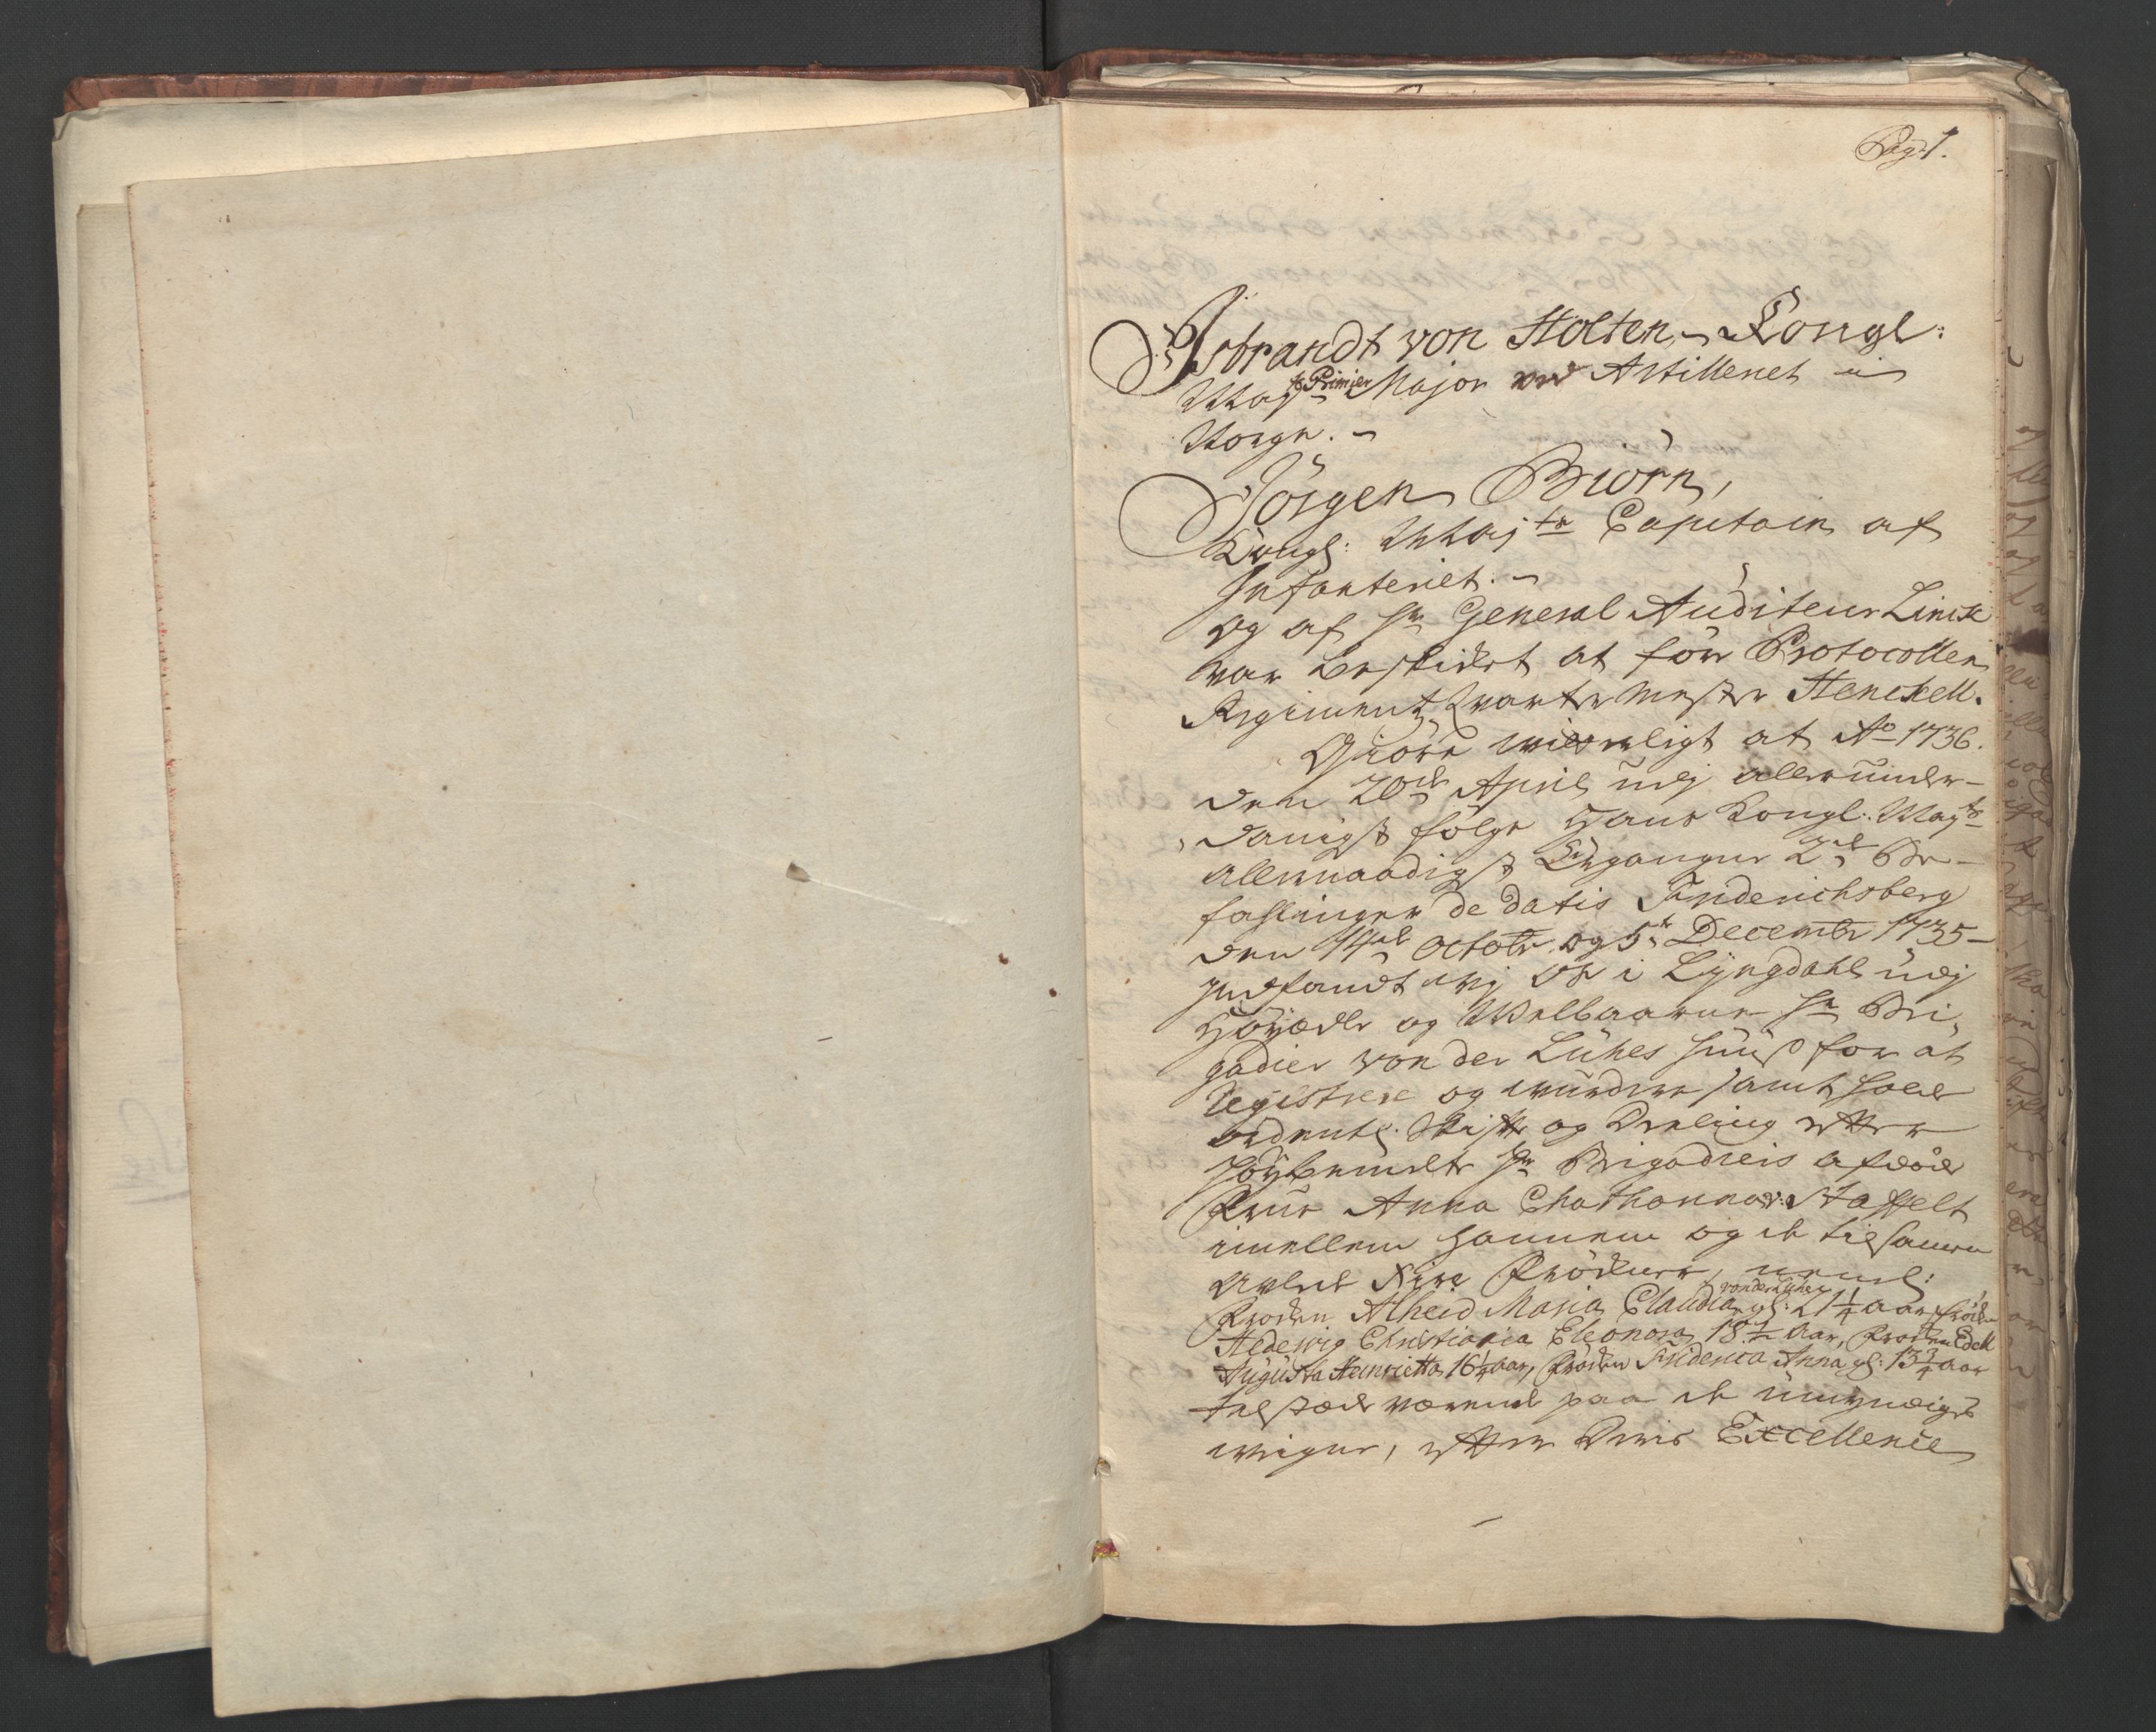 Pag: 1.
Isbrandt von Holten, Kongl:
Mayts Primier Major ved Artilleriet i
Norge.
Jörgen Biörn,
Kongl: Maj:ts Capitain af
Infanteriet.
og af Hr General Auditeur Linck
var beskicket at före Protocollen
Regiments Qvarteer Mester Henckell.
Giöre witterligt at Ao 1736.
den 20de April udj allerunder-
danigst fölge Hans Kongl: Mayts
allernaadigst Ergangne 2de Be-
fahlinger de datis Friderichsberg
den 14de Octobr og 5te Decembr 1735
indfandt wj Os i Lyngdahl udj
Höyædle og Welbaarne Hr Bri-
gadier von der Lühes Huus for at
Registrere og wurdere samt holde
ordentl: Skifte og Deeling efter
Höybemelte Hr Brigadiers afdöde
Frue Anna Chatharina Staffelt
imellem hannem og de tilsamen
avlede Fire Fröckner, nemb:
Froken Alheid Maria Claudia von der Lühe gl: 21 1/4 aar, Fröken
Hedewig Christiana Eleonora 18 1/2 Aar, Froken Edell
Augusta Henrietta 16 1/4 Aar, Fröken Friderica Anna gl: 13 3/4 aar
tilstæde værende paa de umyndiges
weigne, efter Deris Excellence